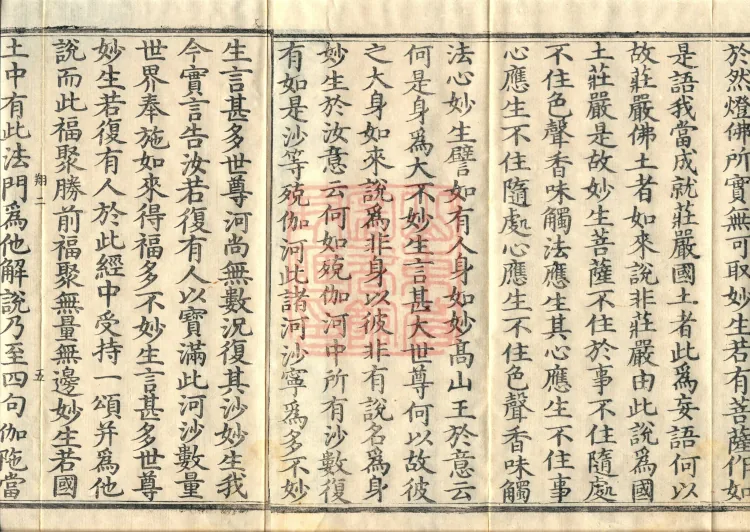 於然燈佛所實無可取妙生若有菩薩作如
是語我當成就莊嚴國土者此爲妄語何以
故莊嚴佛土者如來說非莊嚴由此說爲國
土莊嚴是故妙生菩薩不住於事不住隨處
不住色聲香味觸法應生其心應生不住事
心應生不住隨處心應生不住色聲香味觸
法心妙生譬如有人身如妙髙山王於意云
何是身爲大不妙生言甚大世尊何以故彼
之大身如來說爲非身以彼非有說名爲身
妙生於汝意云何如殑伽河中所有沙數復
有如是沙等殑伽河此諸河沙寧爲多不妙
生言甚多世尊河尚無數況復其沙妙生我
今實言告汝若復有人以寶滿此河沙數量
世界奉施如來得福多不妙生言甚多世尊
妙生若復有人於此經中受持一頌并爲他
說而此福聚勝前福聚無量無邊妙生若國
翔二 五
土中有此法門爲他解說乃至四句伽陁當